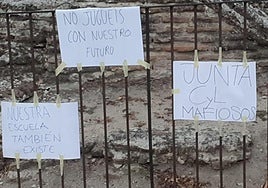 NO JUGUEIS
CON NUESTRO
FUTURO
JUNTA
CYL
MAFIOSOS
NUESTRA
ESCUELA
TAMBIÉN
EXISTE